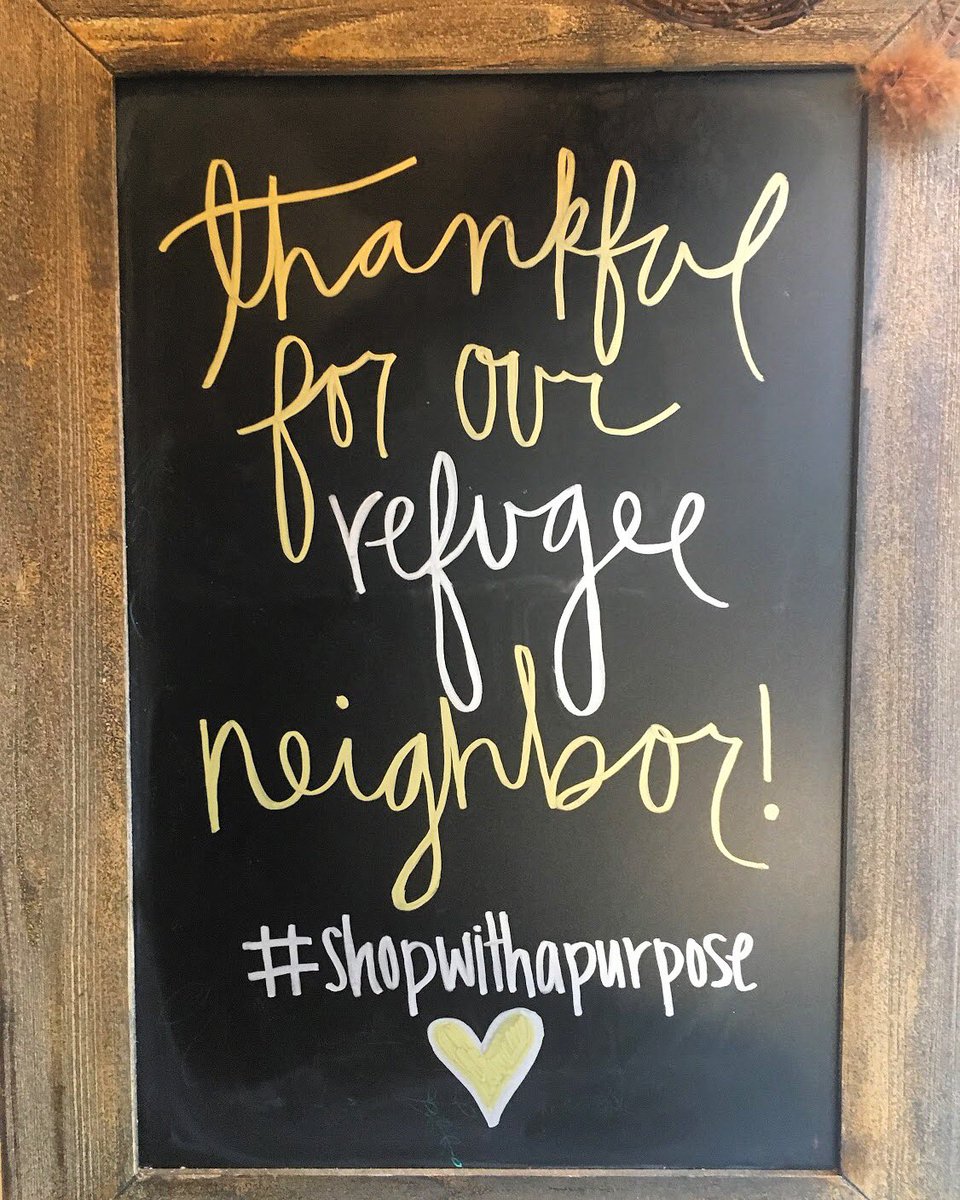 thankful
for our
refugee
neighbor!
#shopwithapurpose